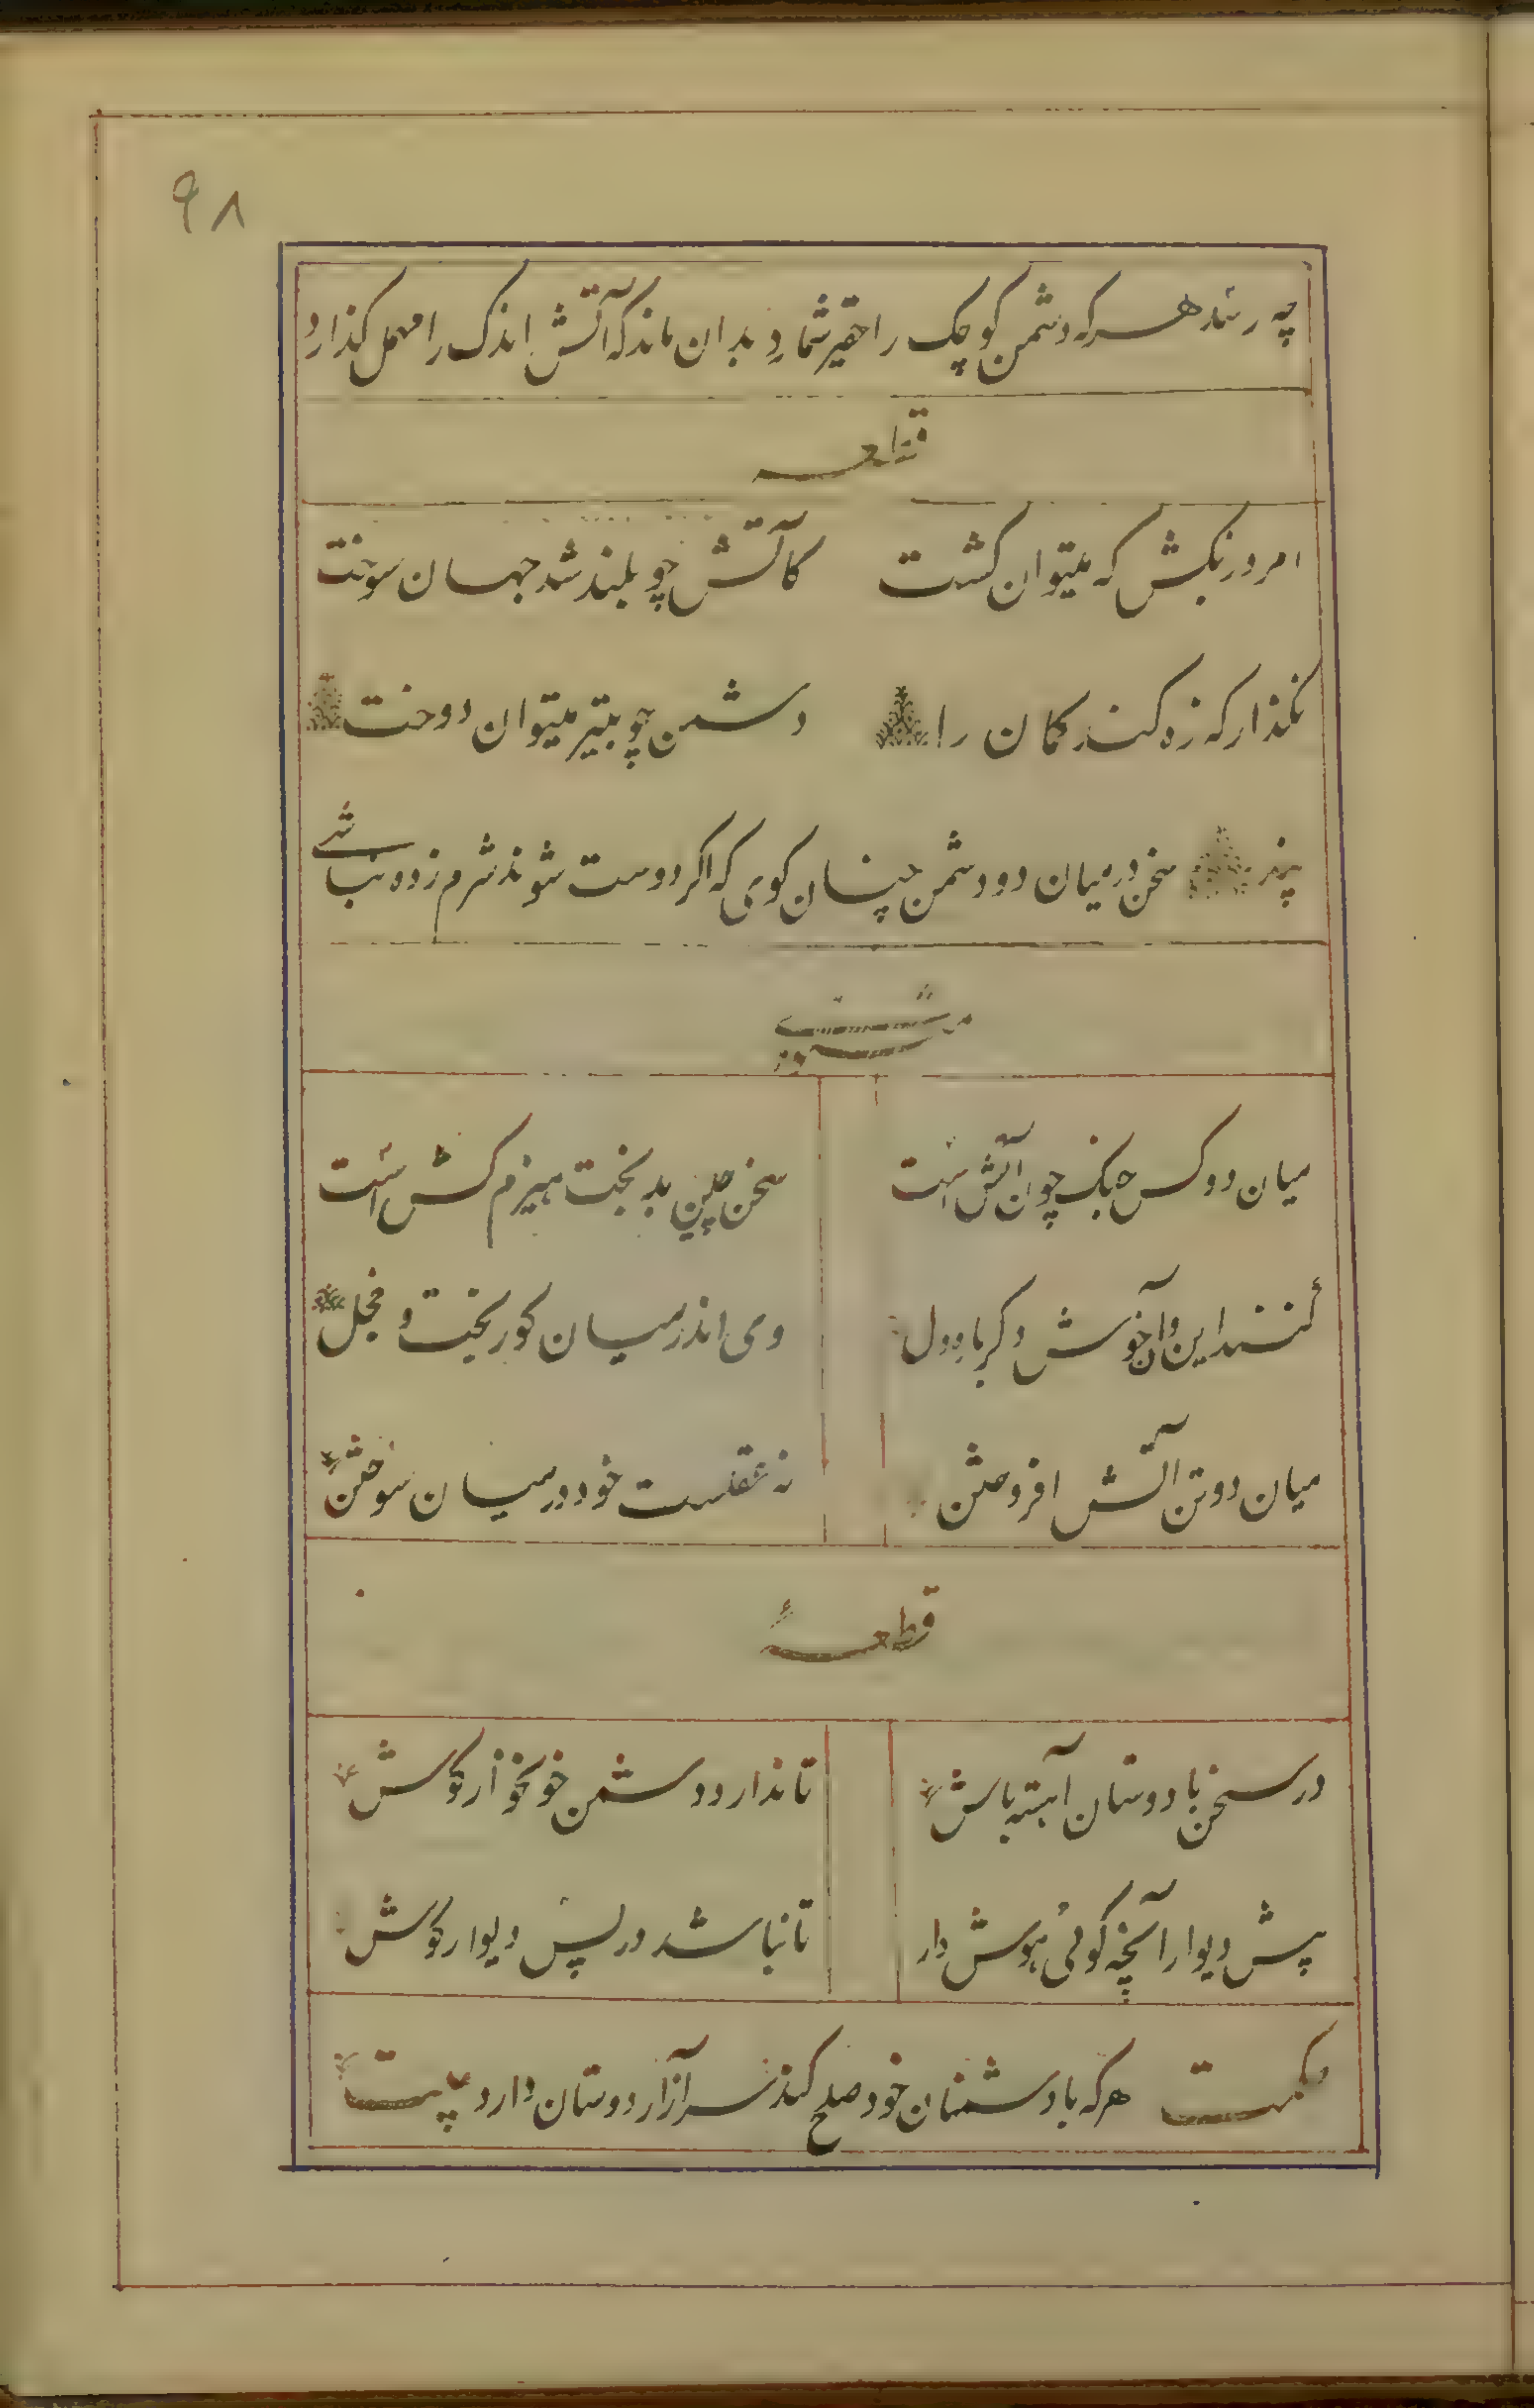 ۹۸
چه رسد هرکه دشمن کوچک را حقیر شمارد بدان ماند که آتش اندک را مهمل کذارد
قطعه
امروز بکش که میتوان کشت کآتش چو بلند شد جهان سوخت
نکذار که زه کند کمان را دشمن چو بتیر میتوان دوخت
پند سخن در میان دو دشمن چنان کوی که اکر دوست شوند شرم زده نباشی
مثنوی
میان دو کس جنک چون آتش است سخن چین بدبخت هیزم کش است
کنند این و آن خوش دکر باره دل وی اندر میان کور بخت و خجل
میان دو تن آتش افروختن نه عقلست خود در میان سوختن
قطعهٔ
در سخن با دوستان آهسته باش تا ندارد دشمن خونخوار کوش
پیش دیوار آنچه کوئی هوش دار تا نباشد در پس دیوار کوش
حکمت هرکه با دشمنان خود صلح کند سر آزار دوستان دارد بیت